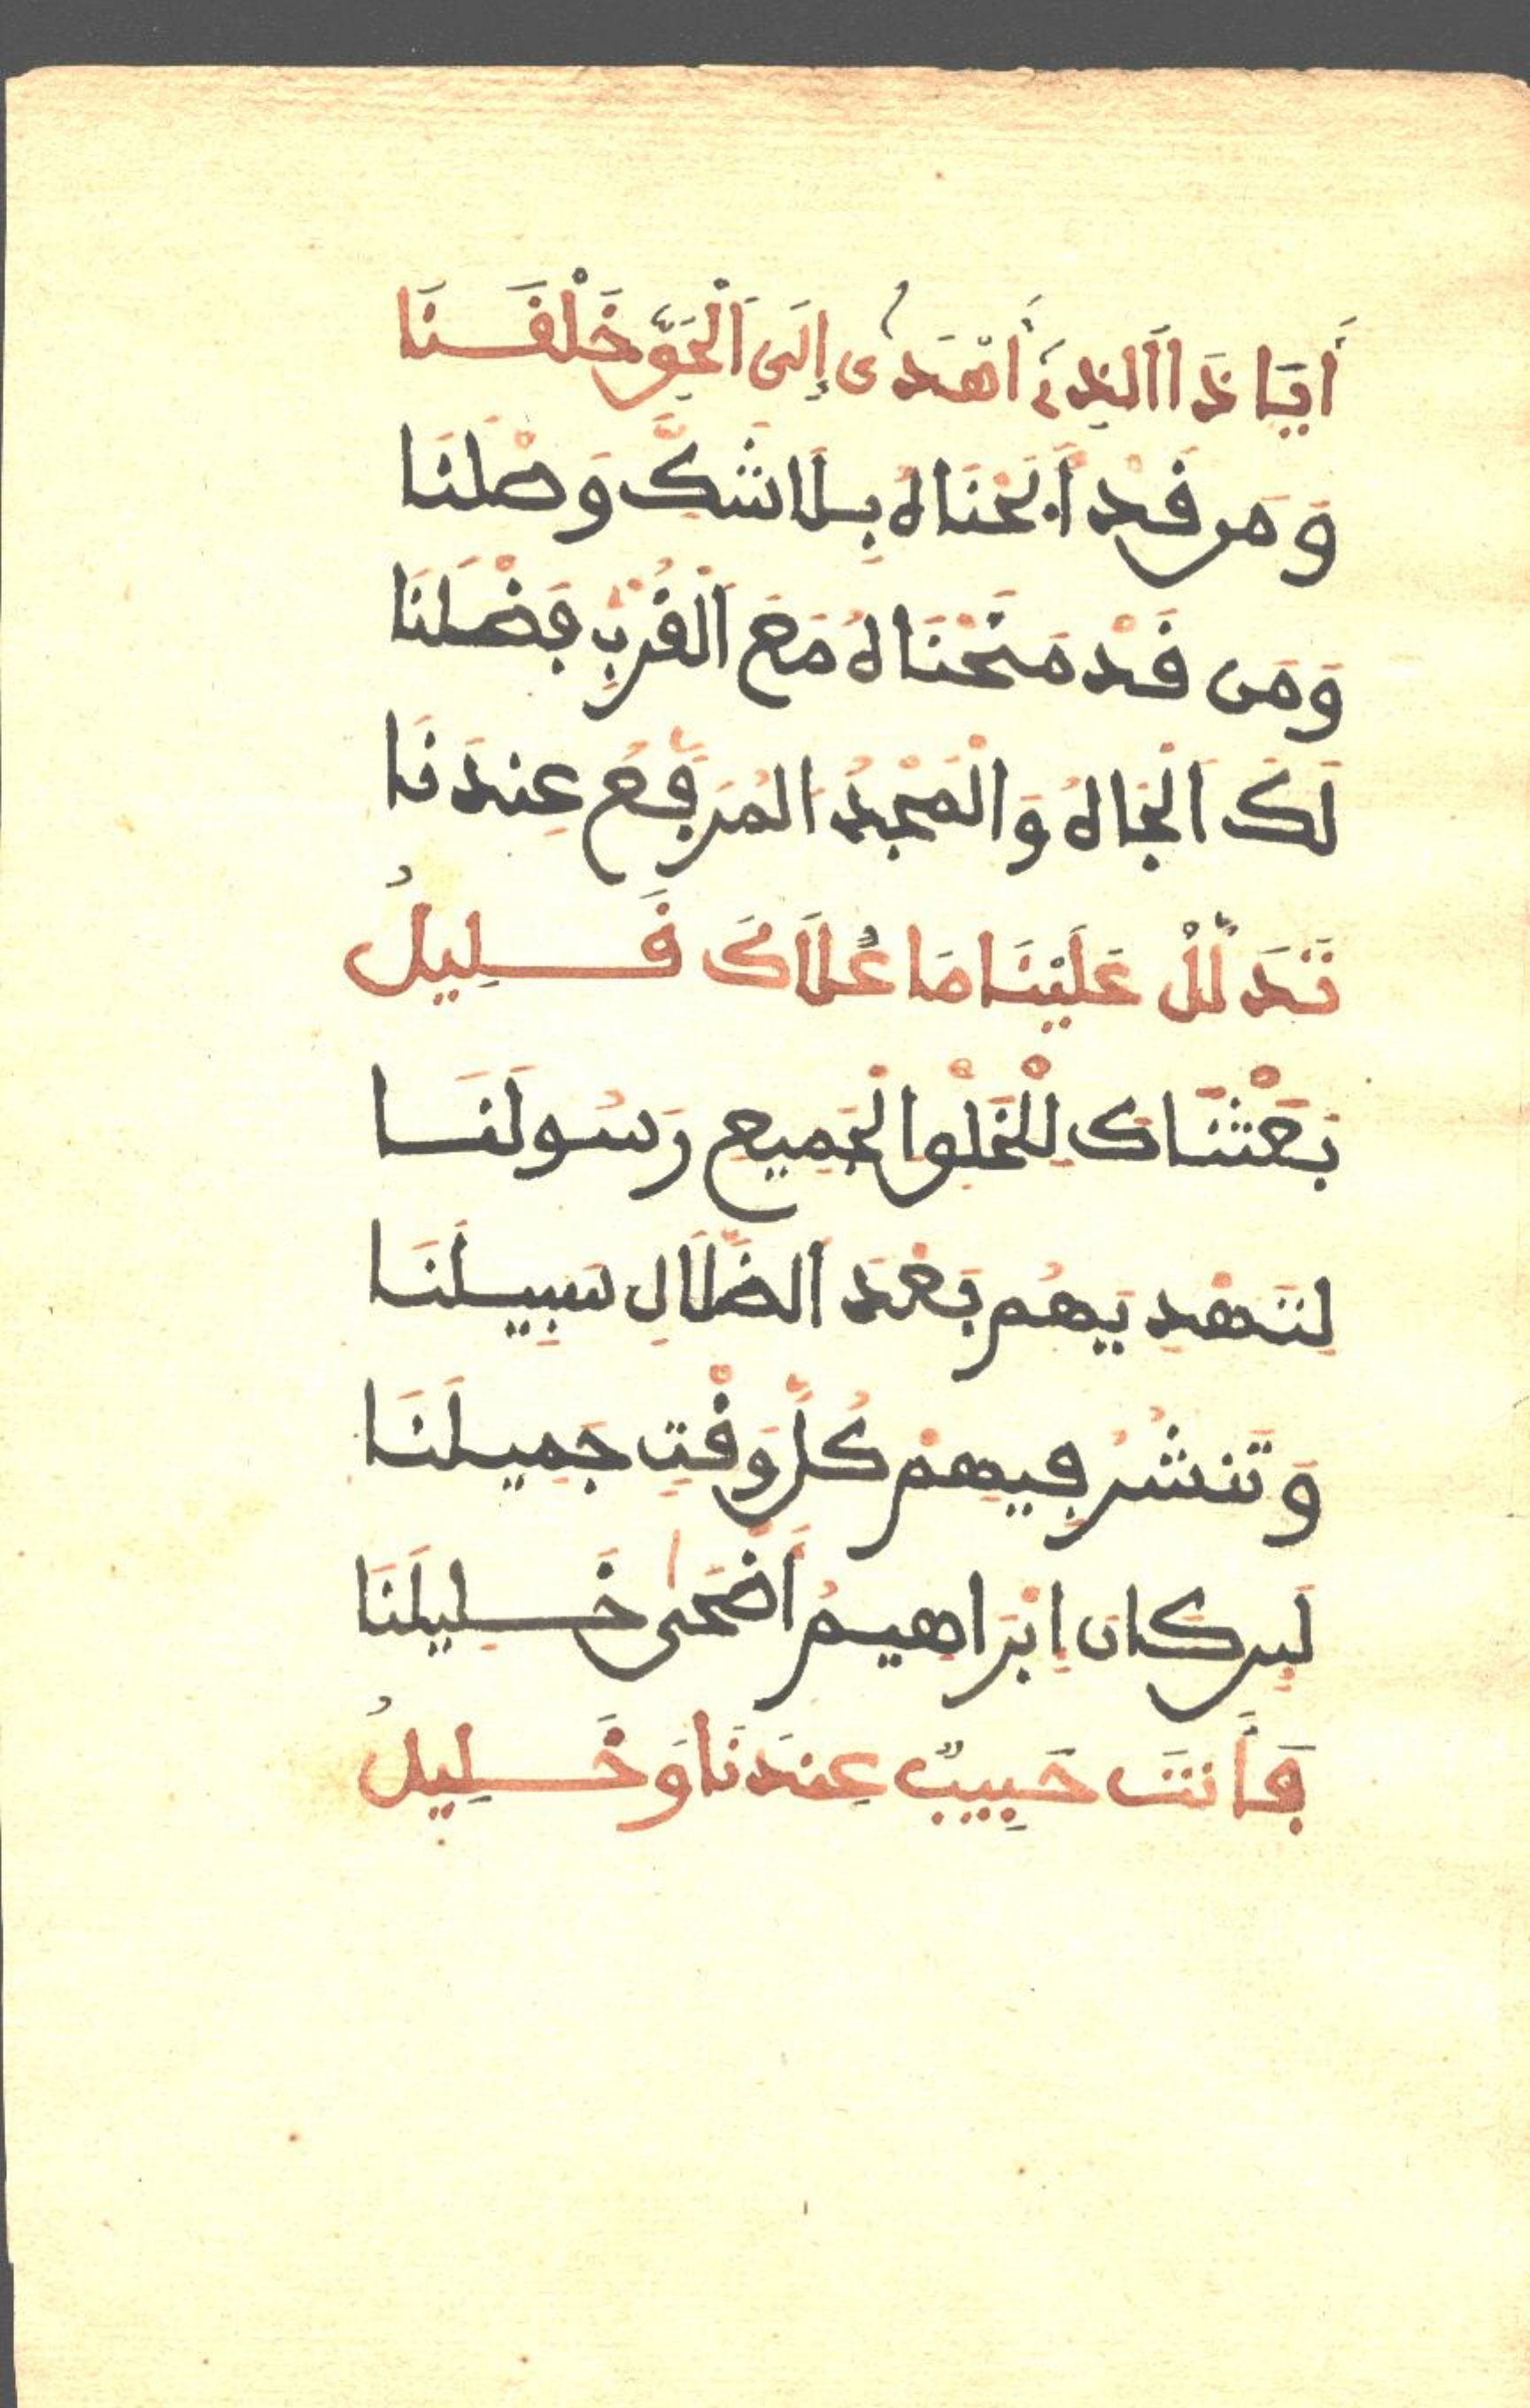 أَيَا ذَا الَّذِي أَهْدَى إِلَى الْحَقِّ خَلْقَنَا
وَمَن قَدْ أَبَحْنَاهُ بِلَا شَكٍّ وَصْلَنَا
وَمَن قَدْ مَنَحْنَاهُ مَعَ الْقُرْبِ فَضْلَنَا
لَكَ الْجَاهُ وَالْمَجْدُ الْمُرَفَّعُ عِندَنَا
تَدَلَّلْ عَلَيْنَا مَا عُلَاكَ قَلِيلُ
بَعَثْنَاكَ لِلْخَلْقِ الْجَمِيعِ رَسُولَنَا
لِتَهْدِيَهُم بَعْدَ الضَّلَالِ سَبِيلَنَا
وَتَنشُرَ فِيهِمْ كُلَّ وَقْتٍ جَمِيلَنَا
لَئِن كَانَ إِبْرَاهِيمُ أَضْحَى خَلِيلَنَا
فَأَنتَ حَبِيبٌ عِندَنَا وَخَلِيلُ